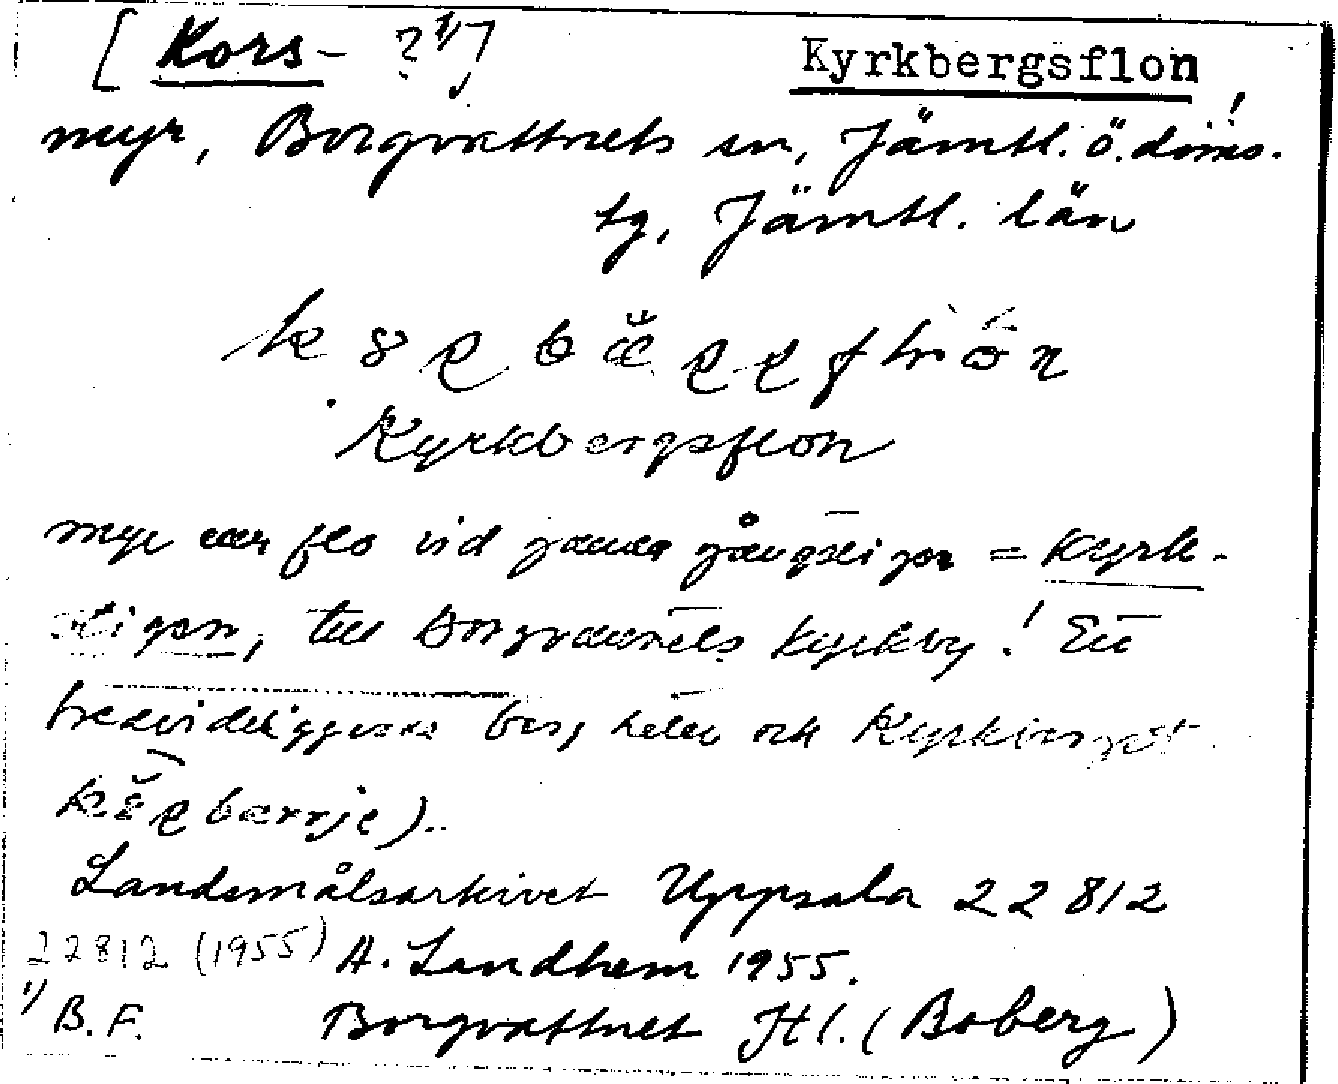 [Kors- ?¹⁾] Kyrkbergsflon
myr, Borgvattnets sn, Jämtl. ö. doms.
tg, Jämtl. län
Kyrkbergsflon
myr flo vid gamla gångstigen = Kyrk-
stigen, till Borgvattnets kyrkby! Ett
bredvidliggande berg heter och Kyrkberget
Landsmålsarkivet Uppsala 22812
22812 (1955) A. Landhem 1955.
¹⁾ B. F. Borgvattnet Jtl. (Boberg)